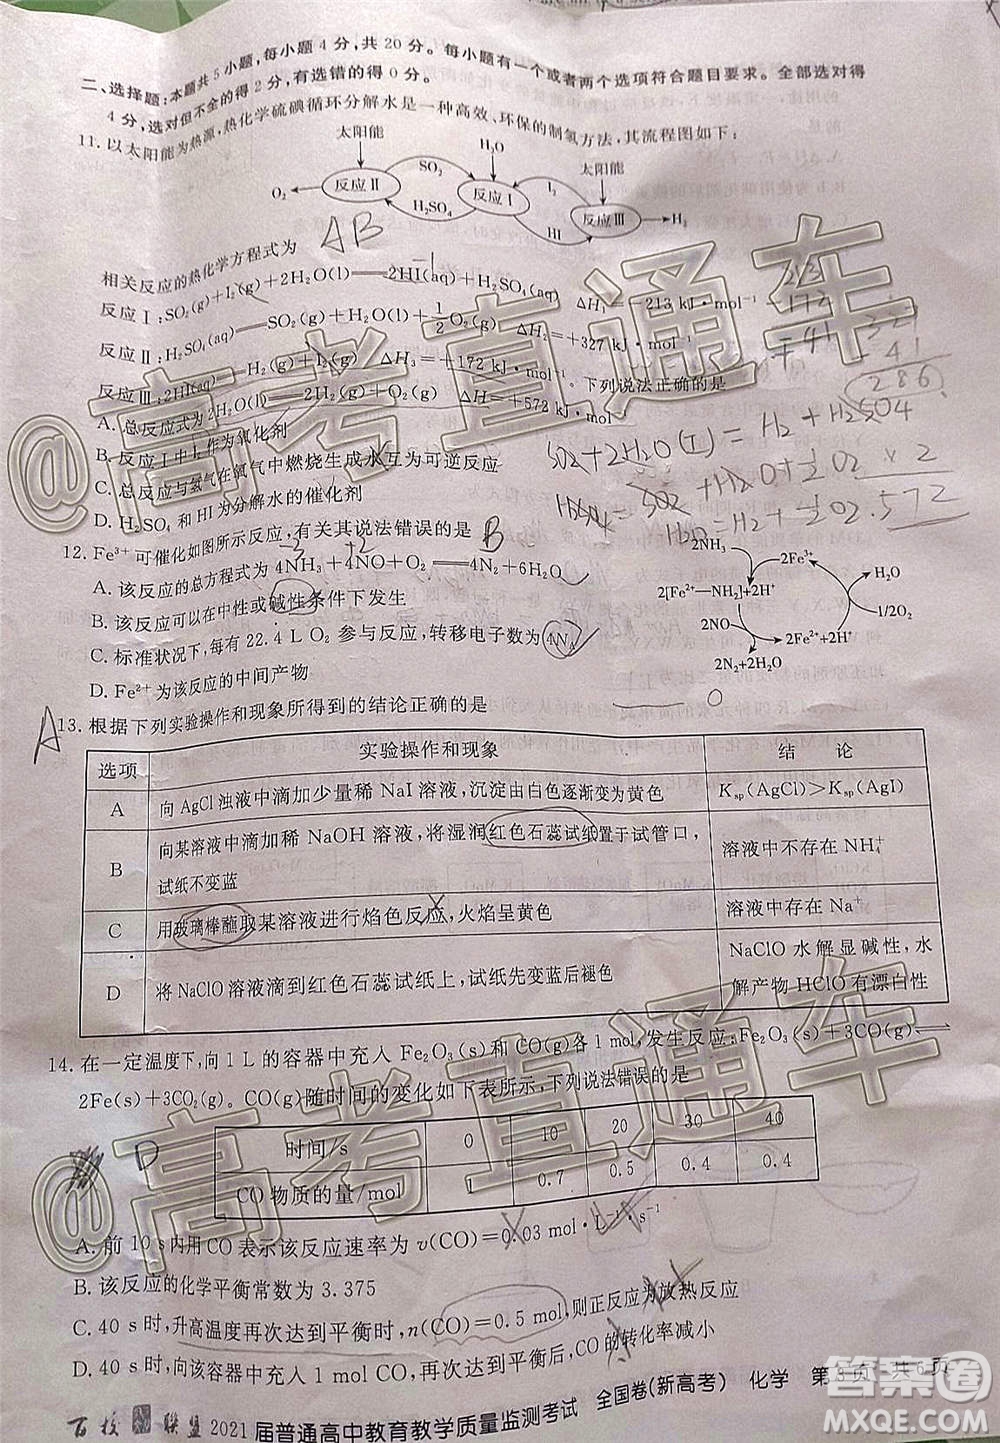 二、选择题:本题共5小题,每小题4分,共20分。每小题有一个或者两个选项符合题目要求。全部选对得
4分,选对但不全的得2分,有选错的得0分。
11. 以太阳能为热源,热化学硫碘循环分解水是一种高效、环保的制氢方法,其流程图如下:
太阳能 H₂O 太阳能
O₂ 反应Ⅱ SO₂ 反应Ⅰ I₂ 反应Ⅲ H₂
H₂SO₄ HI
AB
相关反应的热化学方程式为
反应Ⅰ:SO₂(g)+I₂(g)+2H₂O(l)══2HI(aq)+H₂SO₄(aq) ΔH₁=-213 kJ·mol⁻¹
反应Ⅱ:H₂SO₄(aq)══SO₂(g)+H₂O(l)+1/2O₂(g) ΔH₂=+327 kJ·mol⁻¹
反应Ⅲ:2HI(aq)══H₂(g)+I₂(g) ΔH₃=+172 kJ·mol⁻¹。下列说法正确的是
A. 总反应式为2H₂O(l)══2H₂(g)+O₂(g) ΔH=+572 kJ·mol⁻¹
B. 反应Ⅰ中I₂作为氧化剂
C. 总反应与氢气在氧气中燃烧生成水互为可逆反应
D. H₂SO₄和HI为分解水的催化剂
SO₂+2H₂O(I)=H₂+H₂SO4
H₂SO4=SO2+H₂O+½O₂ ×2
H₂O=H₂+½O2. 572
327
41
286
12. Fe³⁺可催化如图所示反应,有关其说法错误的是 B
A. 该反应的总方程式为4NH₃+4NO+O₂══4N₂+6H₂O
B. 该反应可以在中性或碱性条件下发生
C. 标准状况下,每有22.4 L O₂参与反应,转移电子数为4Nₐ
D. Fe²⁺为该反应的中间产物
2NH₃ 2Fe³⁺ H₂O
2[Fe²⁺—NH₂]+2H⁺
2NO 1/2O₂
2Fe²⁺+2H⁺
2N₂+2H₂O
A
13. 根据下列实验操作和现象所得到的结论正确的是
选项 实验操作和现象 结 论
A 向AgCl浊液中滴加少量稀NaI溶液,沉淀由白色逐渐变为黄色 Kₛₚ(AgCl)>Kₛₚ(AgI)
B 向某溶液中滴加稀NaOH溶液,将湿润红色石蕊试纸置于试管口,
试纸不变蓝 溶液中不存在NH₄⁺
C 用玻璃棒蘸取某溶液进行焰色反应,火焰呈黄色 溶液中存在Na⁺
D 将NaClO溶液滴到红色石蕊试纸上,试纸先变蓝后褪色 NaClO水解显碱性,水
解产物HClO有漂白性
14. 在一定温度下,向1 L的容器中充入Fe₂O₃(s)和CO(g)各1 mol,发生反应:Fe₂O₃(s)+3CO(g)⇌
2Fe(s)+3CO₂(g)。CO(g)随时间的变化如下表所示,下列说法错误的是
D
时间/s 0 10 20 30 40
CO物质的量/mol 1 0.7 0.5 0.4 0.4
A. 前10 s内用CO表示该反应速率为v(CO)=0.03 mol·L⁻¹·s⁻¹
B. 该反应的化学平衡常数为3.375
C. 40 s时,升高温度再次达到平衡时,n(CO)=0.5 mol,则正反应为放热反应
D. 40 s时,向该容器中充入1 mol CO,再次达到平衡后,CO的转化率减小
百校联盟2021届普通高中教育教学质量监测考试 全国卷(新高考) 化学 第3页 共6页
@高考直通车
@高考直通车
答案圈
MXQE.COM